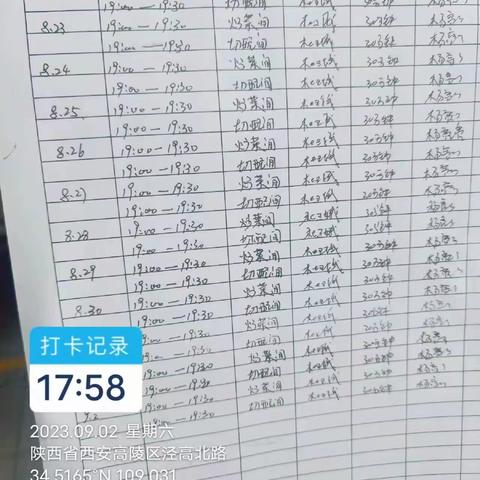 19:00—19:30 切配间 30分钟
8.23 19:00—19:30 炒菜间 红外线 30分钟
19:00—19:30 切配间 红外线 30分钟
8.24 19:00—19:30 炒菜间 红外线 30分钟
19:00—19:30 切配间 红外线 30分钟
8.25 19:00—19:30 炒菜间 红外线 30分钟
19:00—19:30 切配间 红外线 30分钟
8.26 19:00—19:30 炒菜间 红外线 30分钟
19:00—19:30 切配间 红外线 30分钟
8.27 19:00—19:30 炒菜间 红外线 30分钟
19:00—19:30 切配间 红外线 30分钟
8.28 19:00—19:30 炒菜间 红外线 30分钟
19:00—19:30 切配间 红外线 30分钟
8.29 19:00—19:30 炒菜间 红外线 30分钟
19:00—19:30 切配间 红外线 30分钟
8.30 19:00—19:30 炒菜间 红外线 30分钟
19:00—19:30 切配间 红外线 30分钟
19:00—19:30 炒菜间 红外线 30分钟
19:30 切配间 红外线 30分钟
19:30 炒菜间 红外线 30分钟
19:00—19:30 切配间 红外线 30分钟
19:00—19:30 炒菜间 红外线 30分钟
9.2 19:00—19:30 切配间 红外线 30分钟
打卡记录
17:58
2023.09.02 星期六
陕西省西安高陵区泾高北路
34.5165°N,109.031